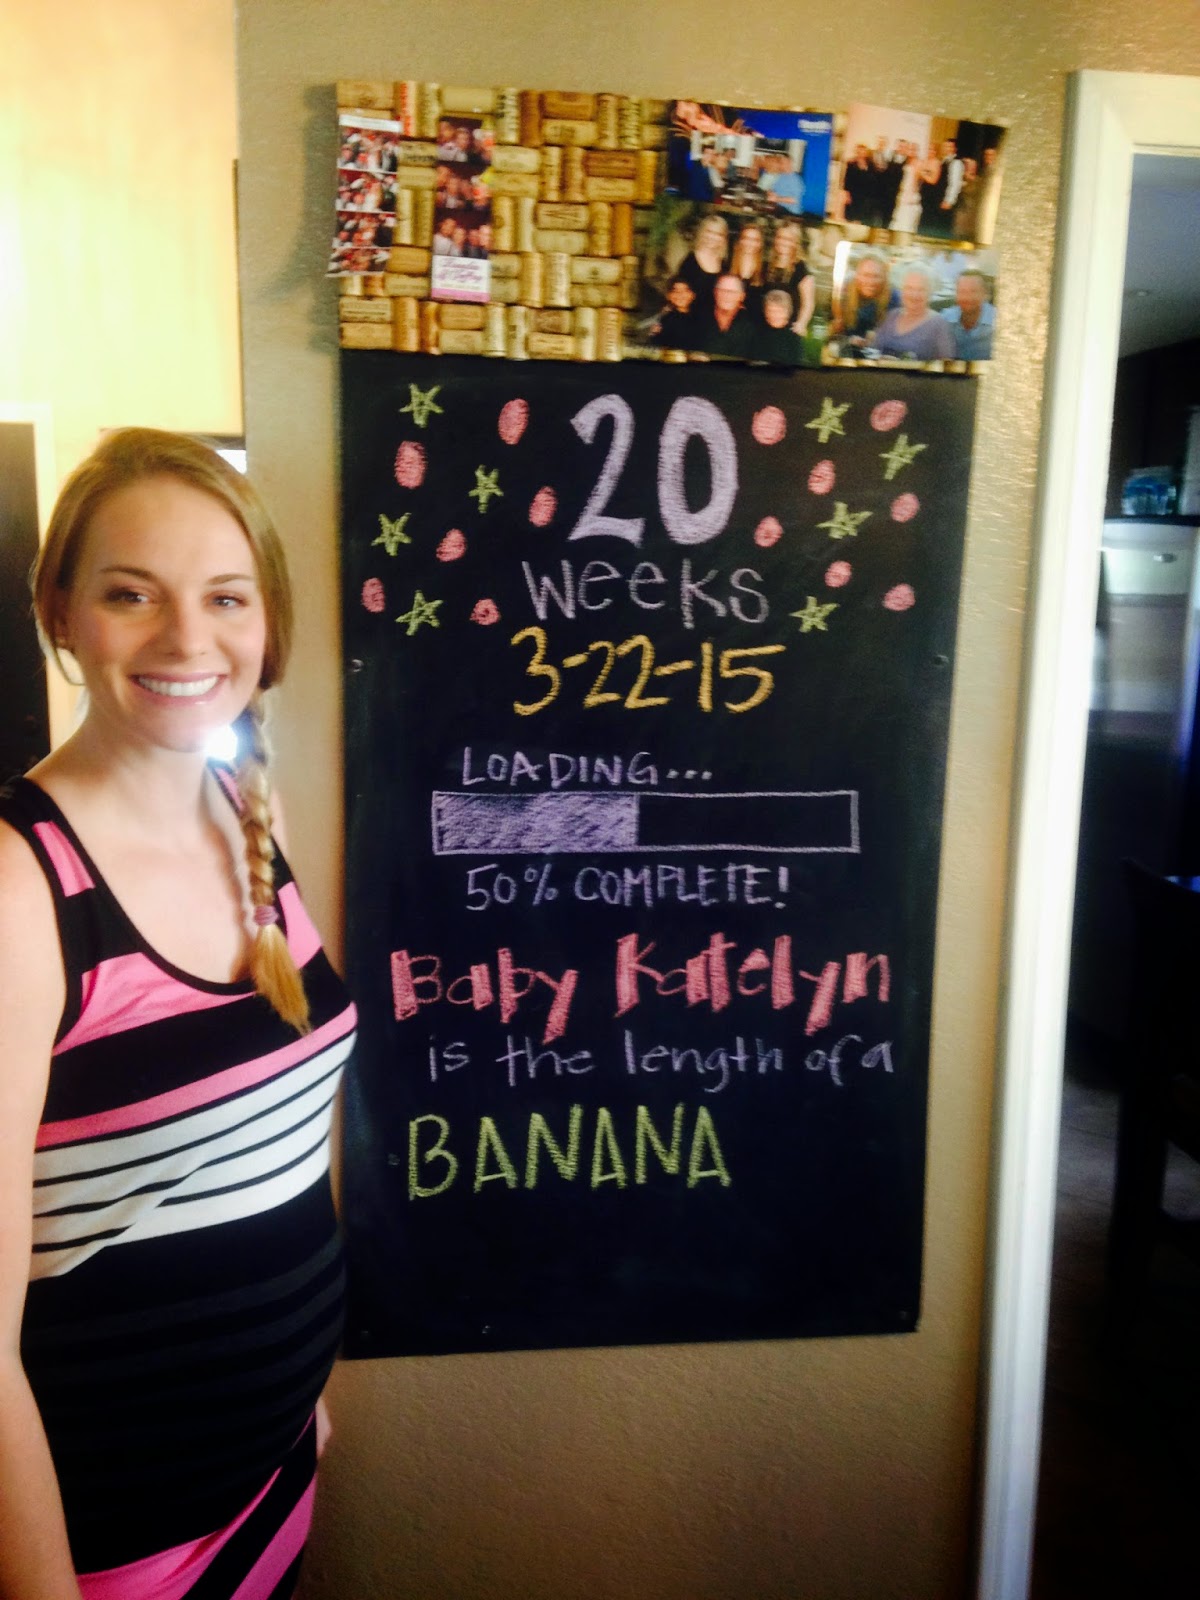 20
weeks
3-22-15
LOADING...
50% COMPLETE!
Baby Katelyn
is the length of a
BANANA